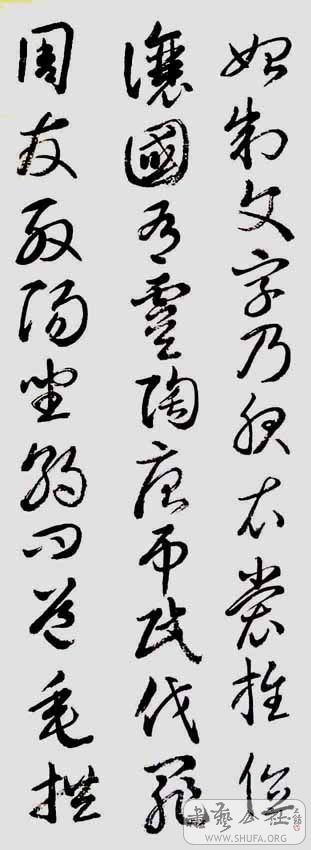 始制文字乃服衣裳推位
讓國有虞陶唐吊民伐罪
周發殷湯坐朝問道垂拱
書艺公社
WWW.SHUFA.ORG